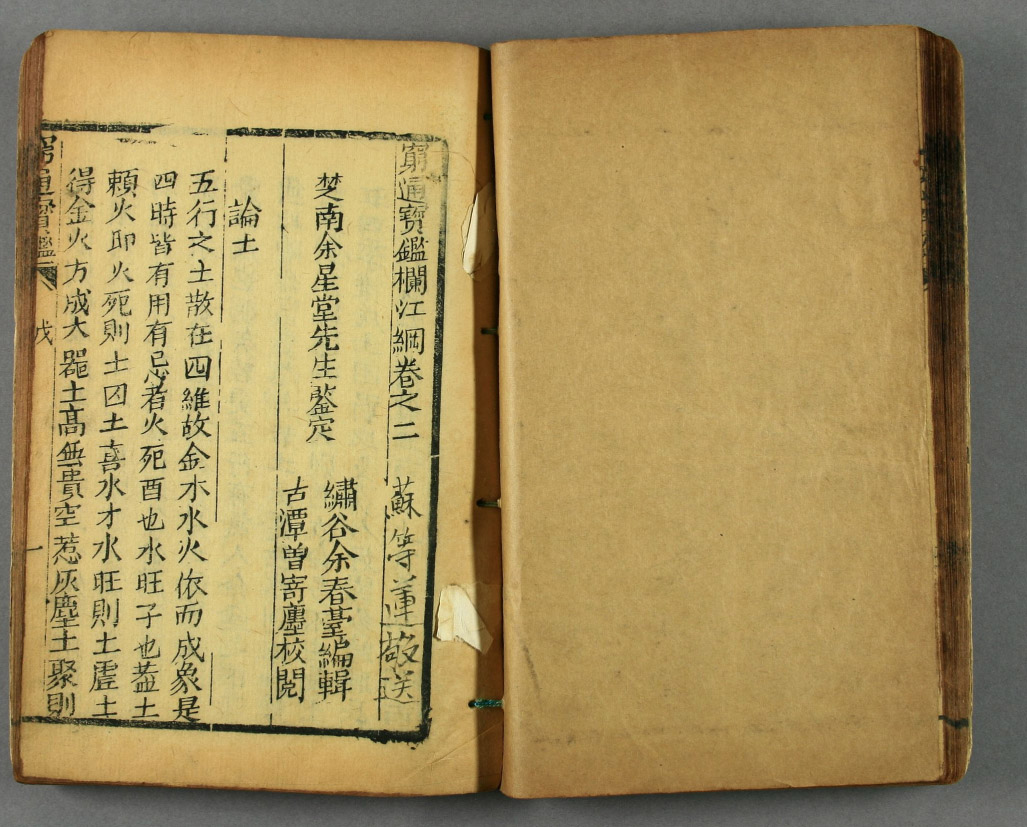 窮通寶鑑欄江綱卷之二
蘇等蓮敬送
楚南余星堂先生鑒定
繡谷余春臺編輯
古潭曾寄廛校閱
論土
五行之土散在四維故金木水火依而成象是
四時皆有用有忌者火死酉也水旺子也葢土
頼火即火死則土囚土喜水才水旺則土虛土
得金火方成大噐土髙無貴空惹灰塵土聚則
窮通寶鑑
戊
一